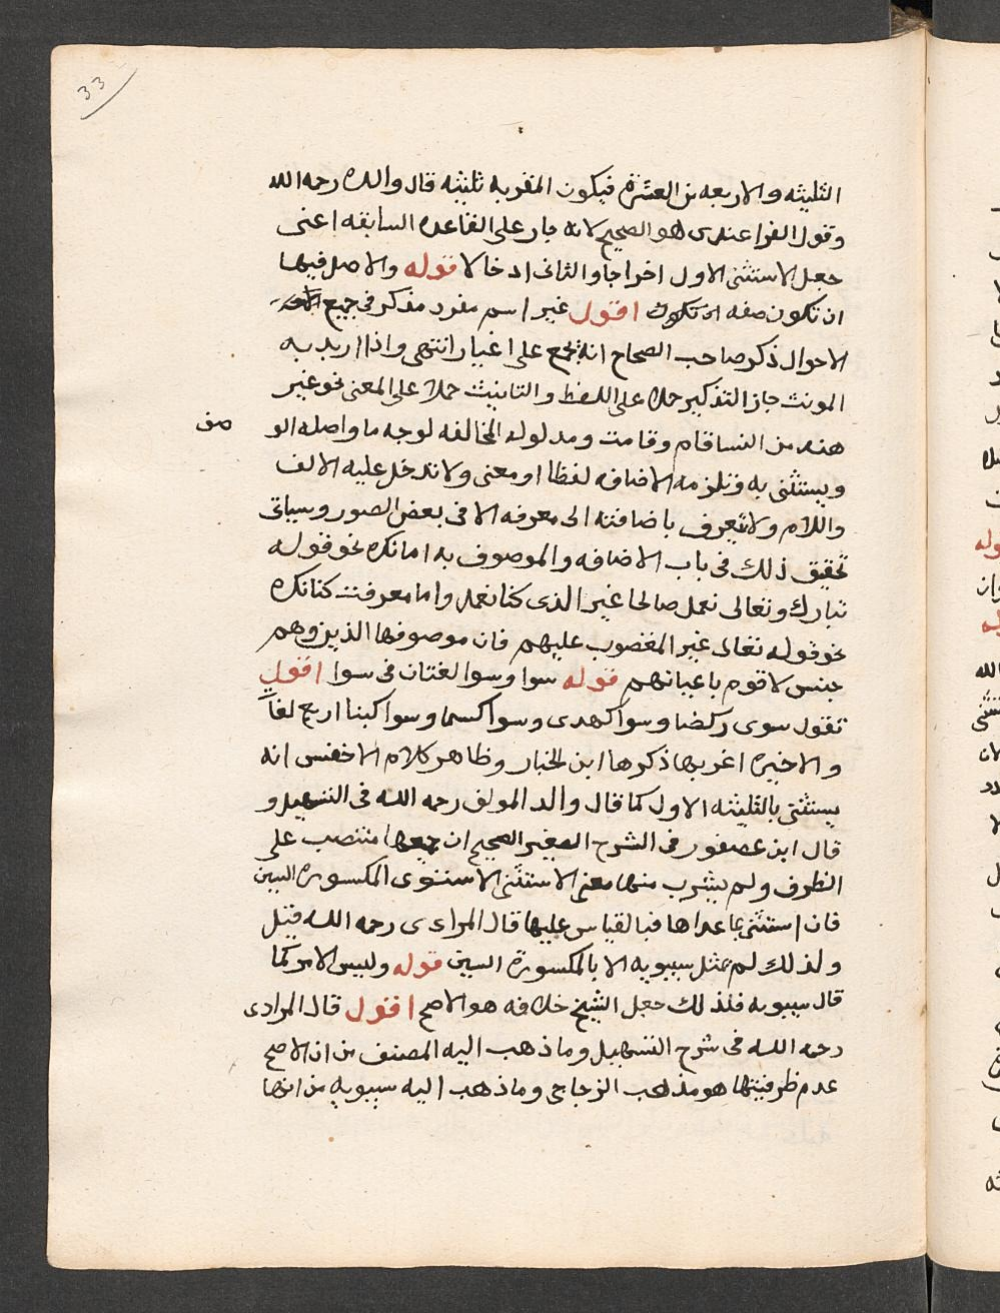 33
الثليثه والاربعه من العشرة فيكون المقر به ثليثه قال والده رحمه الله
وقول الفرا عندى هو الصحيح لانه جار على القاعده السابقه اعنى
جعل الاستثنى الاول اخراجا والثانى ادخالا قوله والاصل فيها
ان تكون صفه اقول غير اسم مفرد مذكر فى جميع
الاحوال ذكر صاحب الصحاح انه يجمع على اغيار انتهى واذا اريد به
المونث جاز التذكير حملا على اللفظ والتانيث حملا على المعنى نحو غير
هند من النسا قام وقامت ومدلوله المخالفه لوجه ما واصله الو
صف
ويستثنى به وتلزمه الاضافه لفظا او معنى ولا تدخل عليه الالف
واللام ولا يتعرف باضافته الى معرفه الا فى بعض الصور وسياتى
تحقيق ذلك فى باب الاضافه والموصوف به اما نكره نحو قوله
تبارك وتعالى نعمل صالحا غير الذى كنا نعمل واما معرفت كنكره
نحو قوله تعالى غير المغضوب عليهم فان موصوفها الذين وهم
جنس لا قوم باعيانهم قوله سوا وسوا لغتان فى سوا اقول
تقول سوى ركضا وسوا كهدى وسوا كسما وسوا كبنا اربع لغات
والاخيره اغربها ذكرها ابن الخباز وظاهر كلام الاخفش انه
يستثنى بالثليثه الاول كما قال والد المولف رحمه الله فى التسهيل و
قال ابن عصفور فى الشرح الصغير الصحيح ان جميعها منتصب على
الظرف ولم يشرب منها معنى الاستثنى الا سوى المكسورة السين
فان استثنى بما عداها فبالقياس عليها قال المرادى رحمه الله قيل
ولذلك لم يمثل سيبويه الا بالمكسورة السين قوله وليس الامر كما
قال سيبويه فلذلك جعل الشيخ خلافه هو الاصح اقول قال المرادى
رحمه الله فى شرح التسهيل وما ذهب اليه المصنف من ان الاصح
عدم ظرفيتها هو مذهب الزجاجى وما ذهب اليه سيبويه من انها